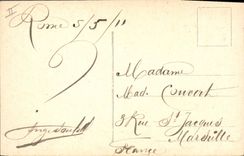 Rome 5/5/11
Madame
Mad. Concert
3 Rue St Jacques
Marseille
France